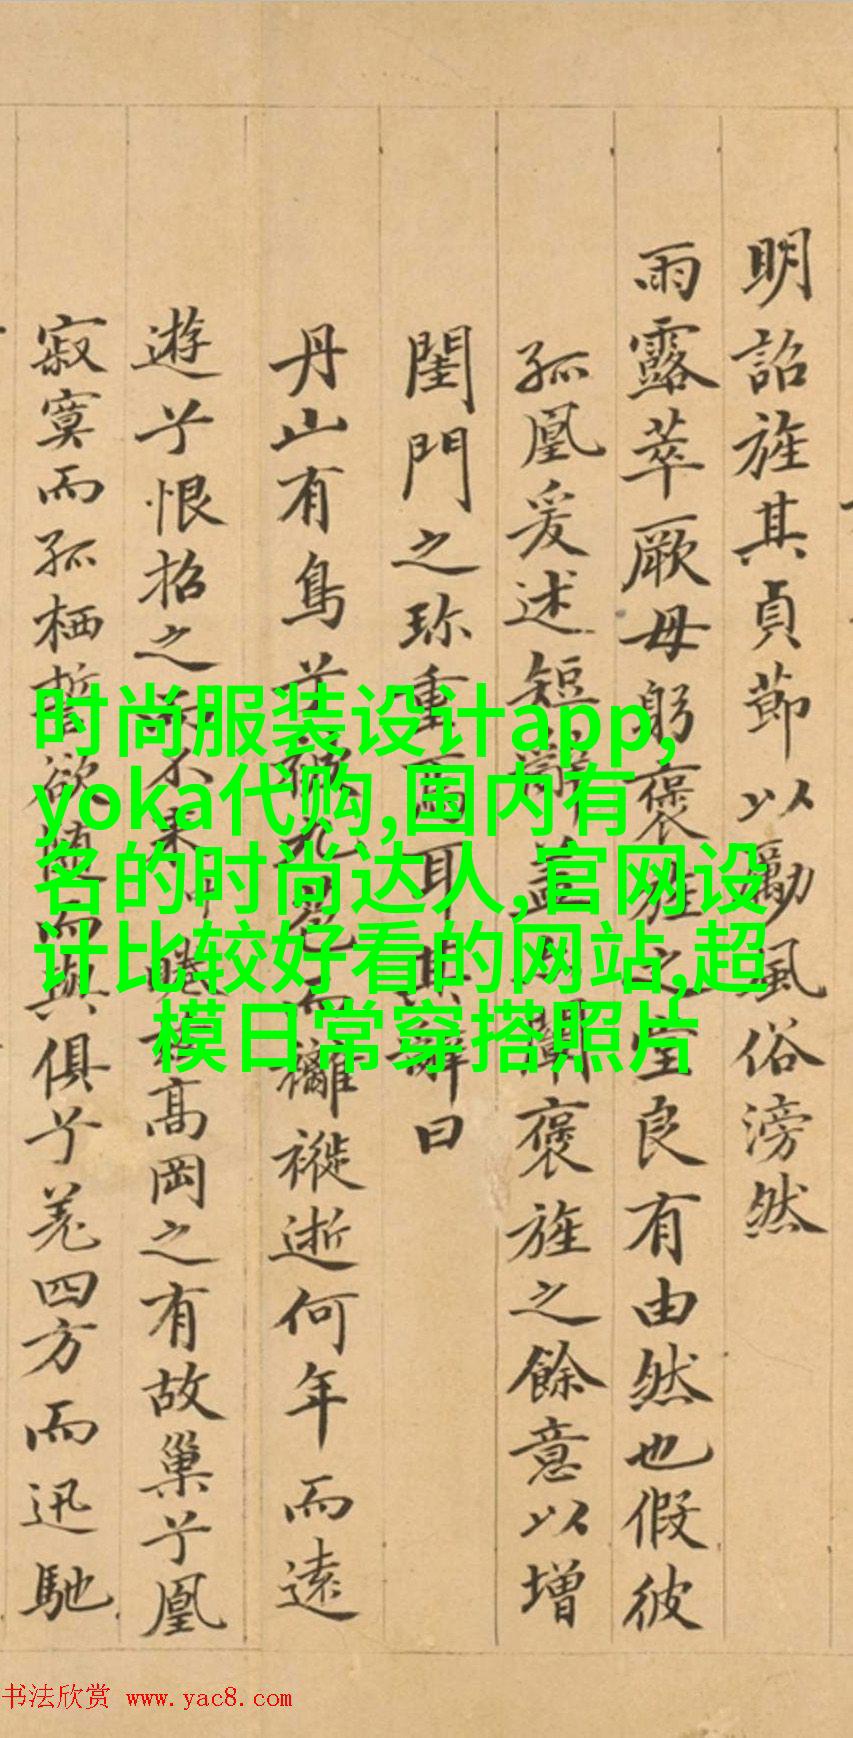 明詔旌其貞節以勵風俗滂然
雨露萃厥母躬褒旌之室良有由然也假彼
孤凰爰述短辭蓋闡褒旌之餘意以增
閨門之珎重焉耳其辭曰
丹山有鳥𠔃褵褷逝何年而遠
遊兮恨招之高岡之有故巢兮凰
寂寞而孤栖誓欲隨而與俱兮羗四方而迅馳
时尚服装设计app,
yoka代购,国内有
名的时尚达人,官网设
计比较好看的网站,超
模日常穿搭照片
书法欣赏 www.yac8.com